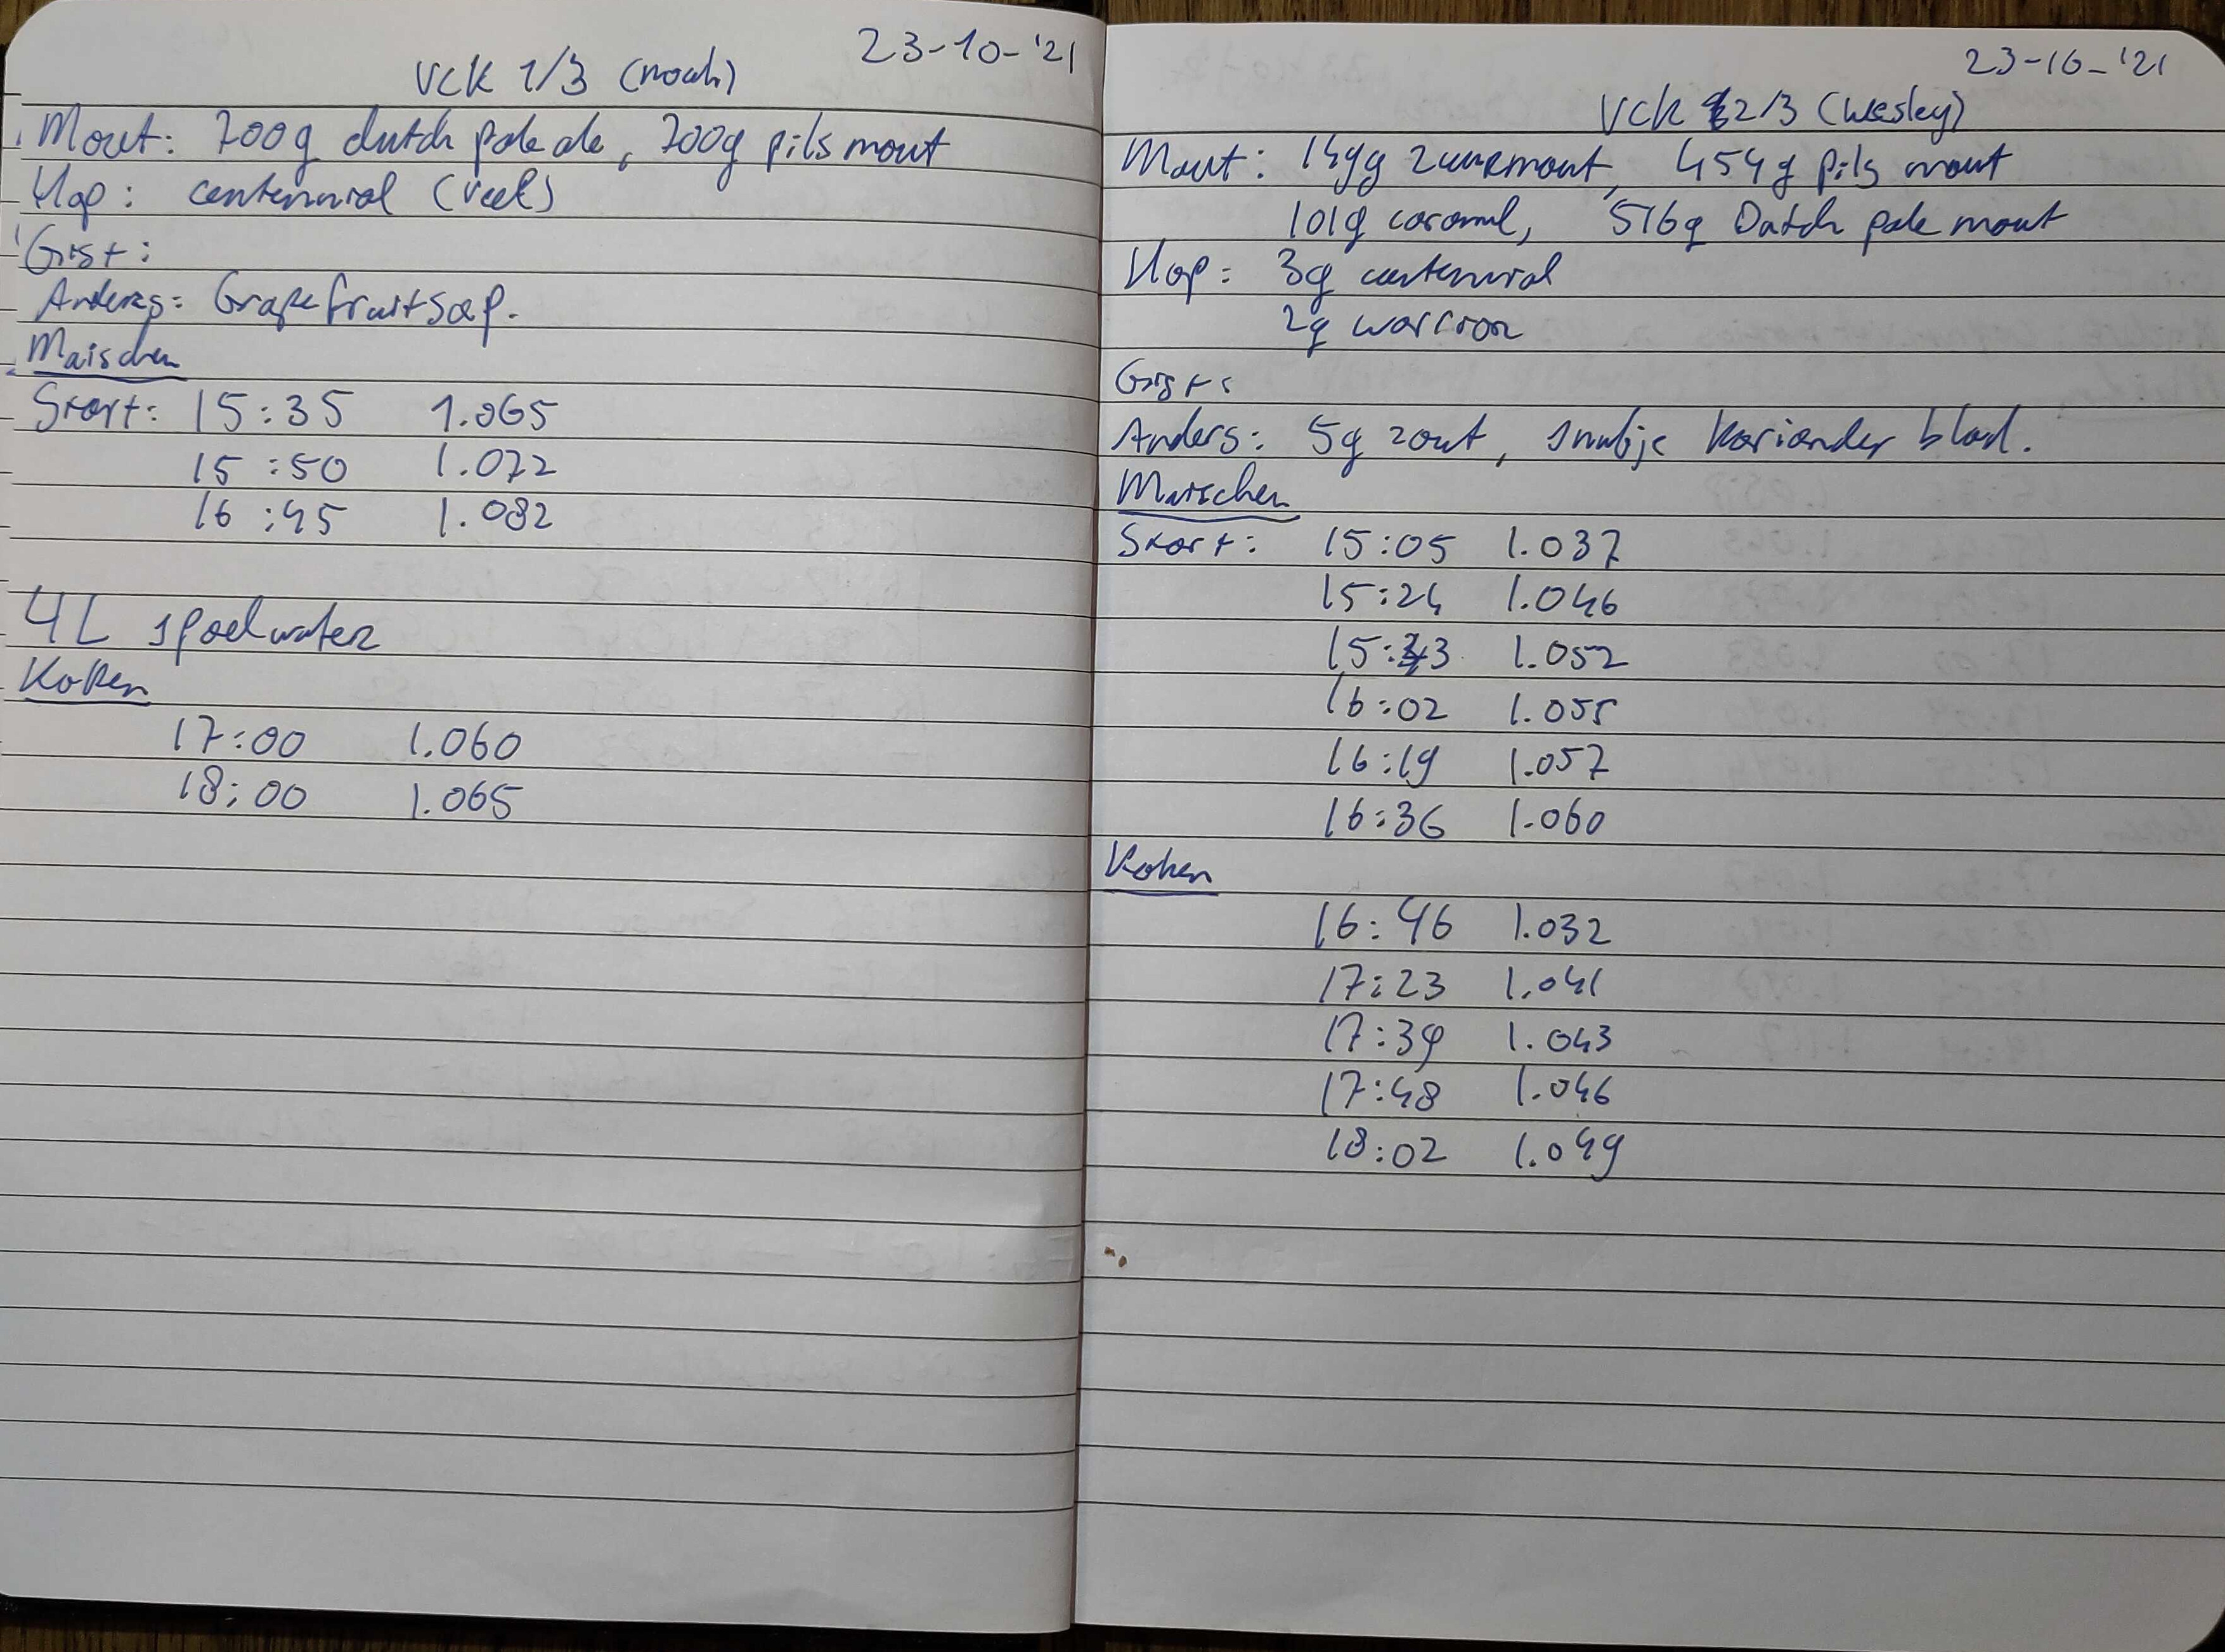 23-10-'21
VCK 1/3 (noah)
Mout: 700g dutch pale ale, 700g pils mout
Hop: centennial (veel)
Gist:
Anders: Grapefruitsap.
Maischen
Start: 15:35 1.065
15:50 1.072
16:45 1.082
4L spoelwater
Koken
17:00 1.060
18:00 1.065
23-10-'21
VCK 2/3 (Wesley)
Mout: 149g zuurmout, 454g pils mout
101g caramel, 516g Dutch pale mout
Hop: 3g centennial
2g warrior
Gist:
Anders: 5g zout, snufje koriander blad.
Maischen
Start: 15:05 1.037
15:24 1.046
15:43 1.052
16:02 1.055
16:19 1.057
16:36 1.060
Koken
16:46 1.032
17:23 1.041
17:39 1.043
17:48 1.046
18:02 1.049